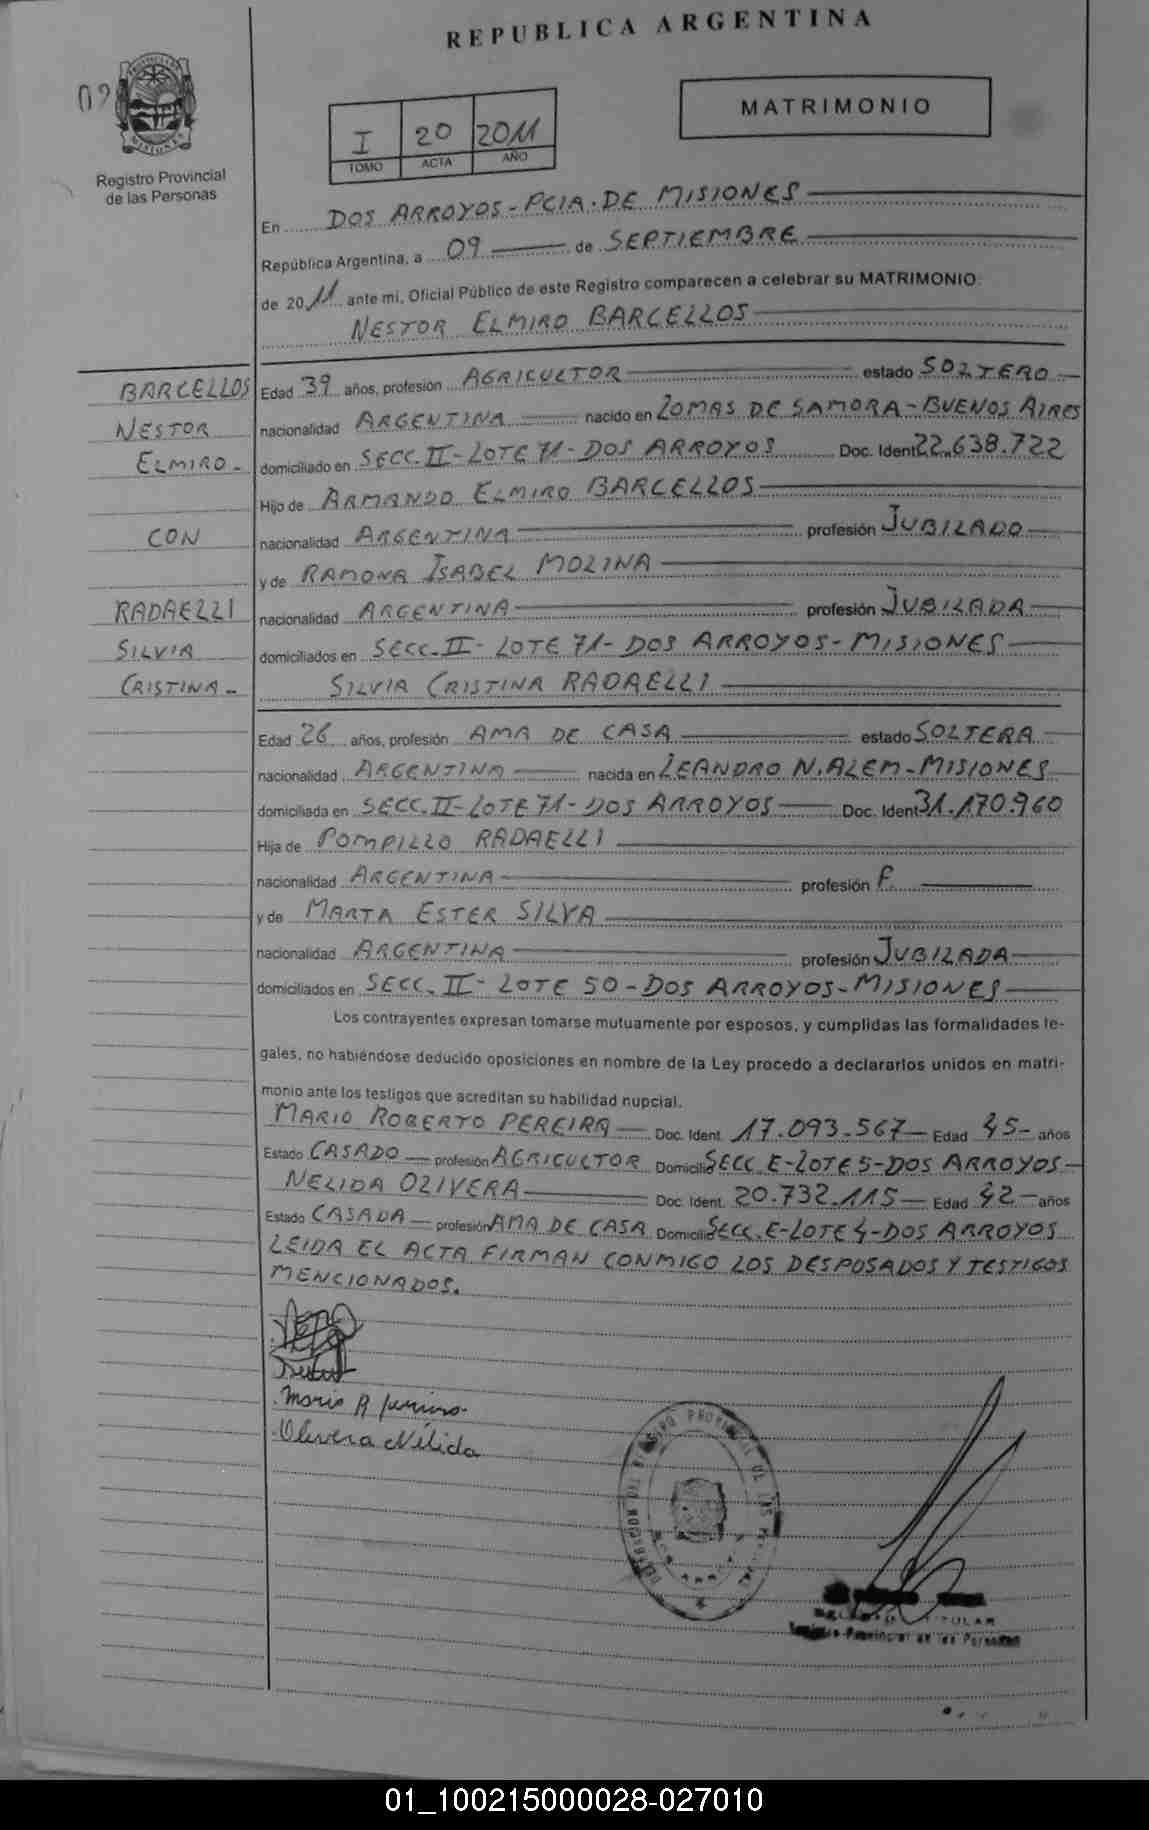 REPUBLICA ARGENTINA
09
MISIONES
Registro Provincial
de las Personas
MATRIMONIO
I 20 2011
TOMO ACTA AÑO
En DOS ARROYOS - PCIA. DE MISIONES
República Argentina, a 09 de SEPTIEMBRE
de 2011 ante mi, Oficial Público de este Registro comparecen a celebrar su MATRIMONIO:
NESTOR ELMIRO BARCELLOS
BARCELLOS Edad 39 años, profesión AGRICULTOR estado SOLTERO
NESTOR nacionalidad ARGENTINA nacido en LOMAS DE SAMORA - BUENOS AIRES
ELMIRO.- domiciliado en SECC. II - LOTE 71 - DOS ARROYOS Doc. Ident 22.638.722
Hijo de ARMANDO ELMIRO BARCELLOS
CON nacionalidad ARGENTINA profesión JUBILADO
y de RAMONA ISABEL MOLINA
RADAELLI nacionalidad ARGENTINA profesión JUBILADA
SILVIA domiciliados en SECC. II - LOTE 71 - DOS ARROYOS - MISIONES
CRISTINA.- SILVIA CRISTINA RADAELLI
Edad 26 años, profesión AMA DE CASA estado SOLTERA
nacionalidad ARGENTINA nacida en LEANDRO N. ALEM - MISIONES
domiciliada en SECC. II - LOTE 71 - DOS ARROYOS Doc. Ident 31.170.960
Hija de POMPILLO RADAELLI
nacionalidad ARGENTINA profesión F.
y de MARTA ESTER SILVA
nacionalidad ARGENTINA profesión JUBILADA
domiciliados en SECC. II - LOTE 50 - DOS ARROYOS - MISIONES
Los contrayentes expresan tomarse mutuamente por esposos, y cumplidas las formalidades le-
gales, no habiéndose deducido oposiciones en nombre de la Ley procedo a declararlos unidos en matri-
monio ante los testigos que acreditan su habilidad nupcial.
MARIO ROBERTO PEREIRA Doc. Ident. 17.093.567 Edad 45 años
Estado CASADO profesión AGRICULTOR Domicilio SECC. E - LOTE 5 - DOS ARROYOS
NELIDA OLIVERA Doc. Ident. 20.732.115 Edad 42 años
Estado CASADA profesión AMA DE CASA Domicilio SECC. E - LOTE 4 - DOS ARROYOS
LEIDA EL ACTA FIRMAN CONMIGO LOS DESPOSADOS Y TESTIGOS
MENCIONADOS.
Mario R
Olivera Nélida
REGISTRO PROVINCIAL DE LAS
TITULAR
Provincial de las Personas
01_100215000028-027010